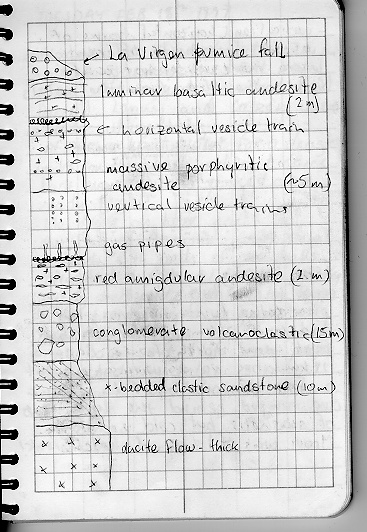 La Virgen pumice fall
laminar basaltic andesite
(2m)
horizontal vesicle train
massive porphyritic
andesite (~5m)
vertical vesicle trains
gas pipes
red amigdular andesite (2m)
conglomerate volcanoclastic (15m)
x-bedded clastic sandstone (10m)
dacite flow - thick